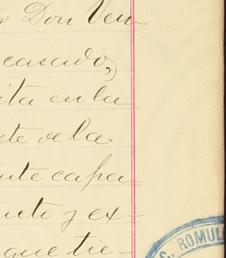 Don Ven-
casado,
ita en la
te de la
nte capa
ucto y ex-
que tie-
ROMUL